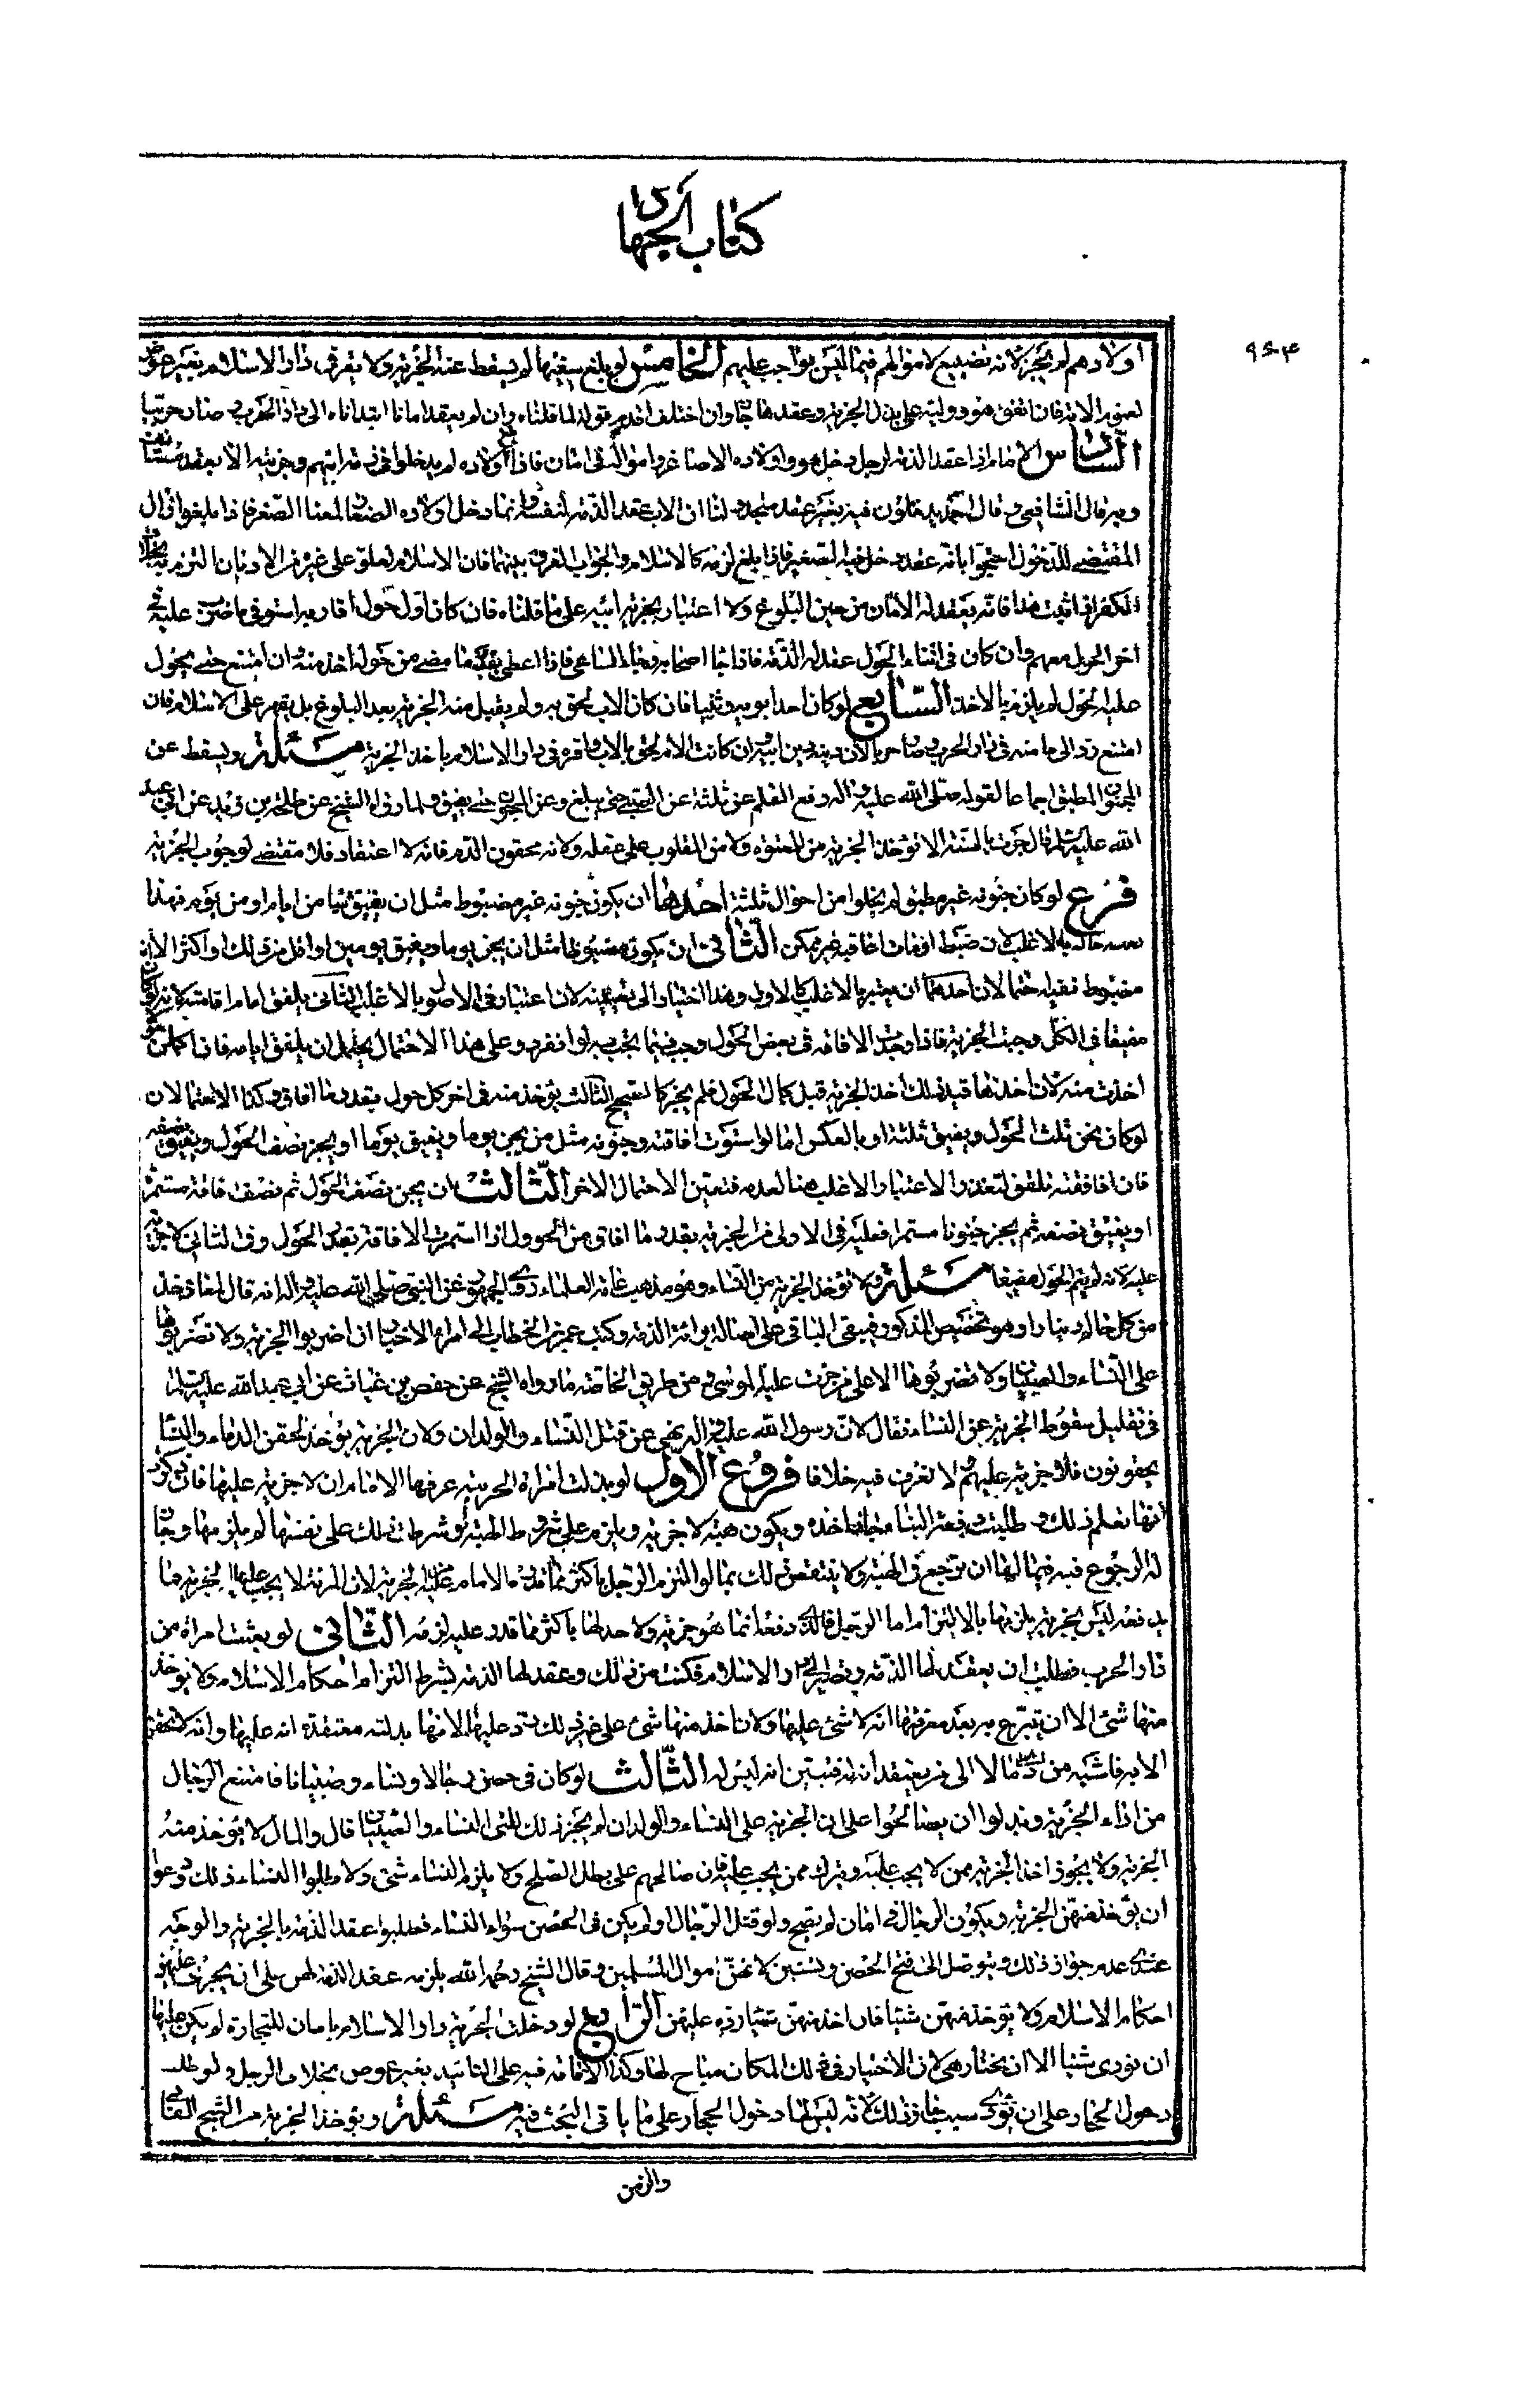 كتاب الجهاد
٩٦٤
اولادهم لم يجز لانه تضييع لاموالهم فيما ليس بواجب عليهم الخامس لو بلغ سفيها لم يسقط عنه الجزية ولا يقر في دار الاسلام بغير عوض
لعموم الاية فان اتفق هو ووليه على بذل الجزية وعقدها جاز وان اختلفا قدم قوله لما قلناه وان لم يعقد امانا نبذناه الى دار الحرب وصار حربيا
السادس الامام اذا عقد الذمة لرجل دخل هو واولاده الاصاغر واموالهم في امان فاذا بلغ اولاده لم يدخلوا في ذمة ابيهم وجزيته الا بعقد مستانف
وبه قال الشافعي وقال احمد يدخلون فيه بغير عقد متجدد لنا ان الاب عقد الذمة لنفسه وانما دخل اولاده الصغار لمعنى الصغر فاذا بلغوا زال
المقتضي للدخول احتجوا بانه عقد دخل فيه الصغير فاذا بلغ لزمه كالاسلام والجواب الفرق بينهما فان الاسلام يعلو على غيره من الاديان التزم به بخلاف
الكفر اذا ثبت هذا فانه يعقد له الامان من حين البلوغ ولا اعتبار بجزية ابيه على ما قلناه فان كان اول حول اقاربه استوفي ما ضرب عليه في
اخر الحول معهم وان كان في اثناء الحول عقد له الذمة فاذا جاء اصحابه وجاء الساعي فاذا اعطى بقدر ما مضى من حوله اخذ منه وان امتنع حتى يحول
عليه الحول لم يلزم بالاخذ السابع لو كان احد ابويه وثنيا فان كان الاب لحق به ولم يقبل منه الجزية بعد البلوغ بل يقهر على الاسلام فان
امتنع رد الى مامنه في دار الحرب وصار حربا لان دينه دين ابيه وان كانت الام لحق بالاب واقر في دار الاسلام باخذ الجزية مسئلة ويسقط عن
المجنون المطبق اجماعا لقوله صلى الله عليه واله رفع القلم عن ثلثة عن الصبي حتى يبلغ وعن المجنون حتى يفيق ولما رواه الشيخ عن طلحة بن زيد عن ابي عبد
الله عليه السلام قال جرت السنة الا تؤخذ الجزية من المعتوه ولا من المغلوب على عقله ولانه محقون الدم فانه لا اعتقاد فلا مقتضي لوجوب الجزية
فرع لو كان جنونه غير مطبق لم يخلوا من احوال ثلثة احدها ان يكون جنونه غير مضبوط مثل ان يفيق شيا من ايام او من يوم فهذا
يعتبر حاله بالاغلب لان ضبط اوقات افاقته غير ممكن الثاني ان يكون مضبوطا مثل ان يجن يوما ويفيق يومين او اقل من ذلك او اكثر الا انه
مضبوط ففيه احتمالان احدهما ان يعتبر بالاغلب كالاول وهذا اختيار ابي حنيفة لان اعتبار في الاصول بالاغلب الثاني يلفق ايام افاقته لانه لو كان
مفيقا في الكل وجبت الجزية فاذا وجدت الافاقة في بعض الحول وجب فيما يجب به لو انفرد وعلى هذا الاحتمال يحتمل ان يلفق ايامه فاذا كملت حولا
اخذت منه لان اخذها قبل ذلك اخذ الجزية قبل كمال الحول فلم يجز كالصحيح الثالث يؤخذ منه في اخر كل حول بقدر ما افاق وكذا الاحتمالان
لو كان يجن ثلث الحول ويفيق ثلثيه او بالعكس اما لو استوت افاقته وجنونه مثل من يجن يوما ويفيق يوما او يجن نصف الحول ويفيق نصفه
فان افاقته تلفق لتعذر الاعتبار بالاغلب هنا لعدمه فتعين الاحتمال الاخر الثالث ان يجن نصف الحول ثم نصف افاقة مستمرة
او يفيق نصفه ثم يجن جنونا مستمرا فعليه في الاولى من الجزية بقدر ما افاق من الحول اذا استمرت الافاقة بعد الحول وفي الثاني لا جزية
عليه لانه لم يتم الحول مفيقا مسئلة ولا تؤخذ الجزية من النساء وهو مذهب عامة العلماء روى الجمهور عن النبي صلى الله عليه واله انه قال لمعاذ خذ
من كل حالم دينارا وهو تخصيص الذكور فيبقى الباقي على اصالة براءة الذمة وكتب عمر بن الخطاب الى امراء الاجناد ان اضربوا الجزية ولا تضربوها
على النساء والصبيان ولا تضربوها الا على من جرت عليه الموسى ومن طريق الخاصة ما رواه الشيخ عن حفص بن غياث عن ابي عبد الله عليه السلام
في تعليل سقوط الجزية عن النساء فقال لان رسول الله عليه واله نهى عن قتل النساء والولدان ولان الجزية يؤخذ لحقن الدماء والنساء
محقونون فلا جزية عليهم ولا نعرف فيه خلافا فروع الاول لو بذلت امراة الجزية عرفها الامام ان لا جزية عليها فان ذكرت
انها تعلم ذلك وطلبت دفعه الينا جاز اخذه ويكون هبة لا جزية ويلزم على شروط الهبة ولو شرطت ذلك على نفسها لم يلزمها وجاز
لها الرجوع فيه فيما لها ان ترجع في الهبة ولا ينتقض ذلك بما لو التزم الرجل باكثر مما قدره الامام عليه الجزية لان المراة لا يجب عليها الجزية فما
يدفعه ليس بجزية يلزمها بالالتزام اما الرجل فالذي دفعه انما هو جزية ولا حد لها باكثر مما قدر عليه لزمه الثاني لو بعثت امراة من
دار الحرب فطلبت ان يعقد لها الذمة وتصير الى دار الاسلام مكنت من ذلك وعقد لها الذمة بشرط التزام احكام الاسلام ولا يؤخذ
منها شئ الا ان تتبرع به بعد معرفتها انه لا شئ عليها وان اخذ منها شئ على غير ذلك رد عليها لانها بذلته معتقدة انه عليها وانه لا تحقن
الا به فاشبه من ادى مالا الى من يعتقد انه له فتبين انه ليس له الثالث لو كان في حصن رجالا ونساء وصبيانا فامتنع الرجال
من اداء الجزية وبذلوا ان يصالحوا على ان الجزية على النساء والولدان لم يجز ذلك للنبي النساء والصبيان قال والمال لا يؤخذ منه
الجزية ولا يجوز اخذ الجزية ممن لا يجب عليه ويترك ممن يجب عليه فان صالحهم على ذلك بطل الصلح ولا يلزم النساء شئ ولا طلبوا النساء ذلك ودعوا
ان يؤخذ منهن الجزية ويكون الرجال في امان لم يصح ولو قتل الرجال او لم يكن في الحصن سواء النساء فطلبوا عقد الذمة بالجزية والوجه
عندي عدم جواز ذلك ويتوصل الى فتح الحصن ويسبين لانهن اموال المسلمين وقال الشيخ رحمه الله يلزمه عقد الذمة لهن على ان يجري عليهن
احكام الاسلام ولا يؤخذ منهن شيئا فان اخذ منهن شيئا رده عليهن الرابع لو دخلت الحربية دار الاسلام بامان للتجارة لم يكن عليها
ان تؤدي شيئا الا ان يختار هي لان الاختيار في ذلك المكان مباح لها وكذا الاقامة فيه على التابيد بغير عوض بخلاف الرجل ولو طلبت
دخول الحجاز على ان تؤدي شيئا جاز ذلك لانه ليس لها دخول الحجاز على ما ياتي البحث فيه مسئلة ويؤخذ الجزية من الشيخ الفاني
والزمن